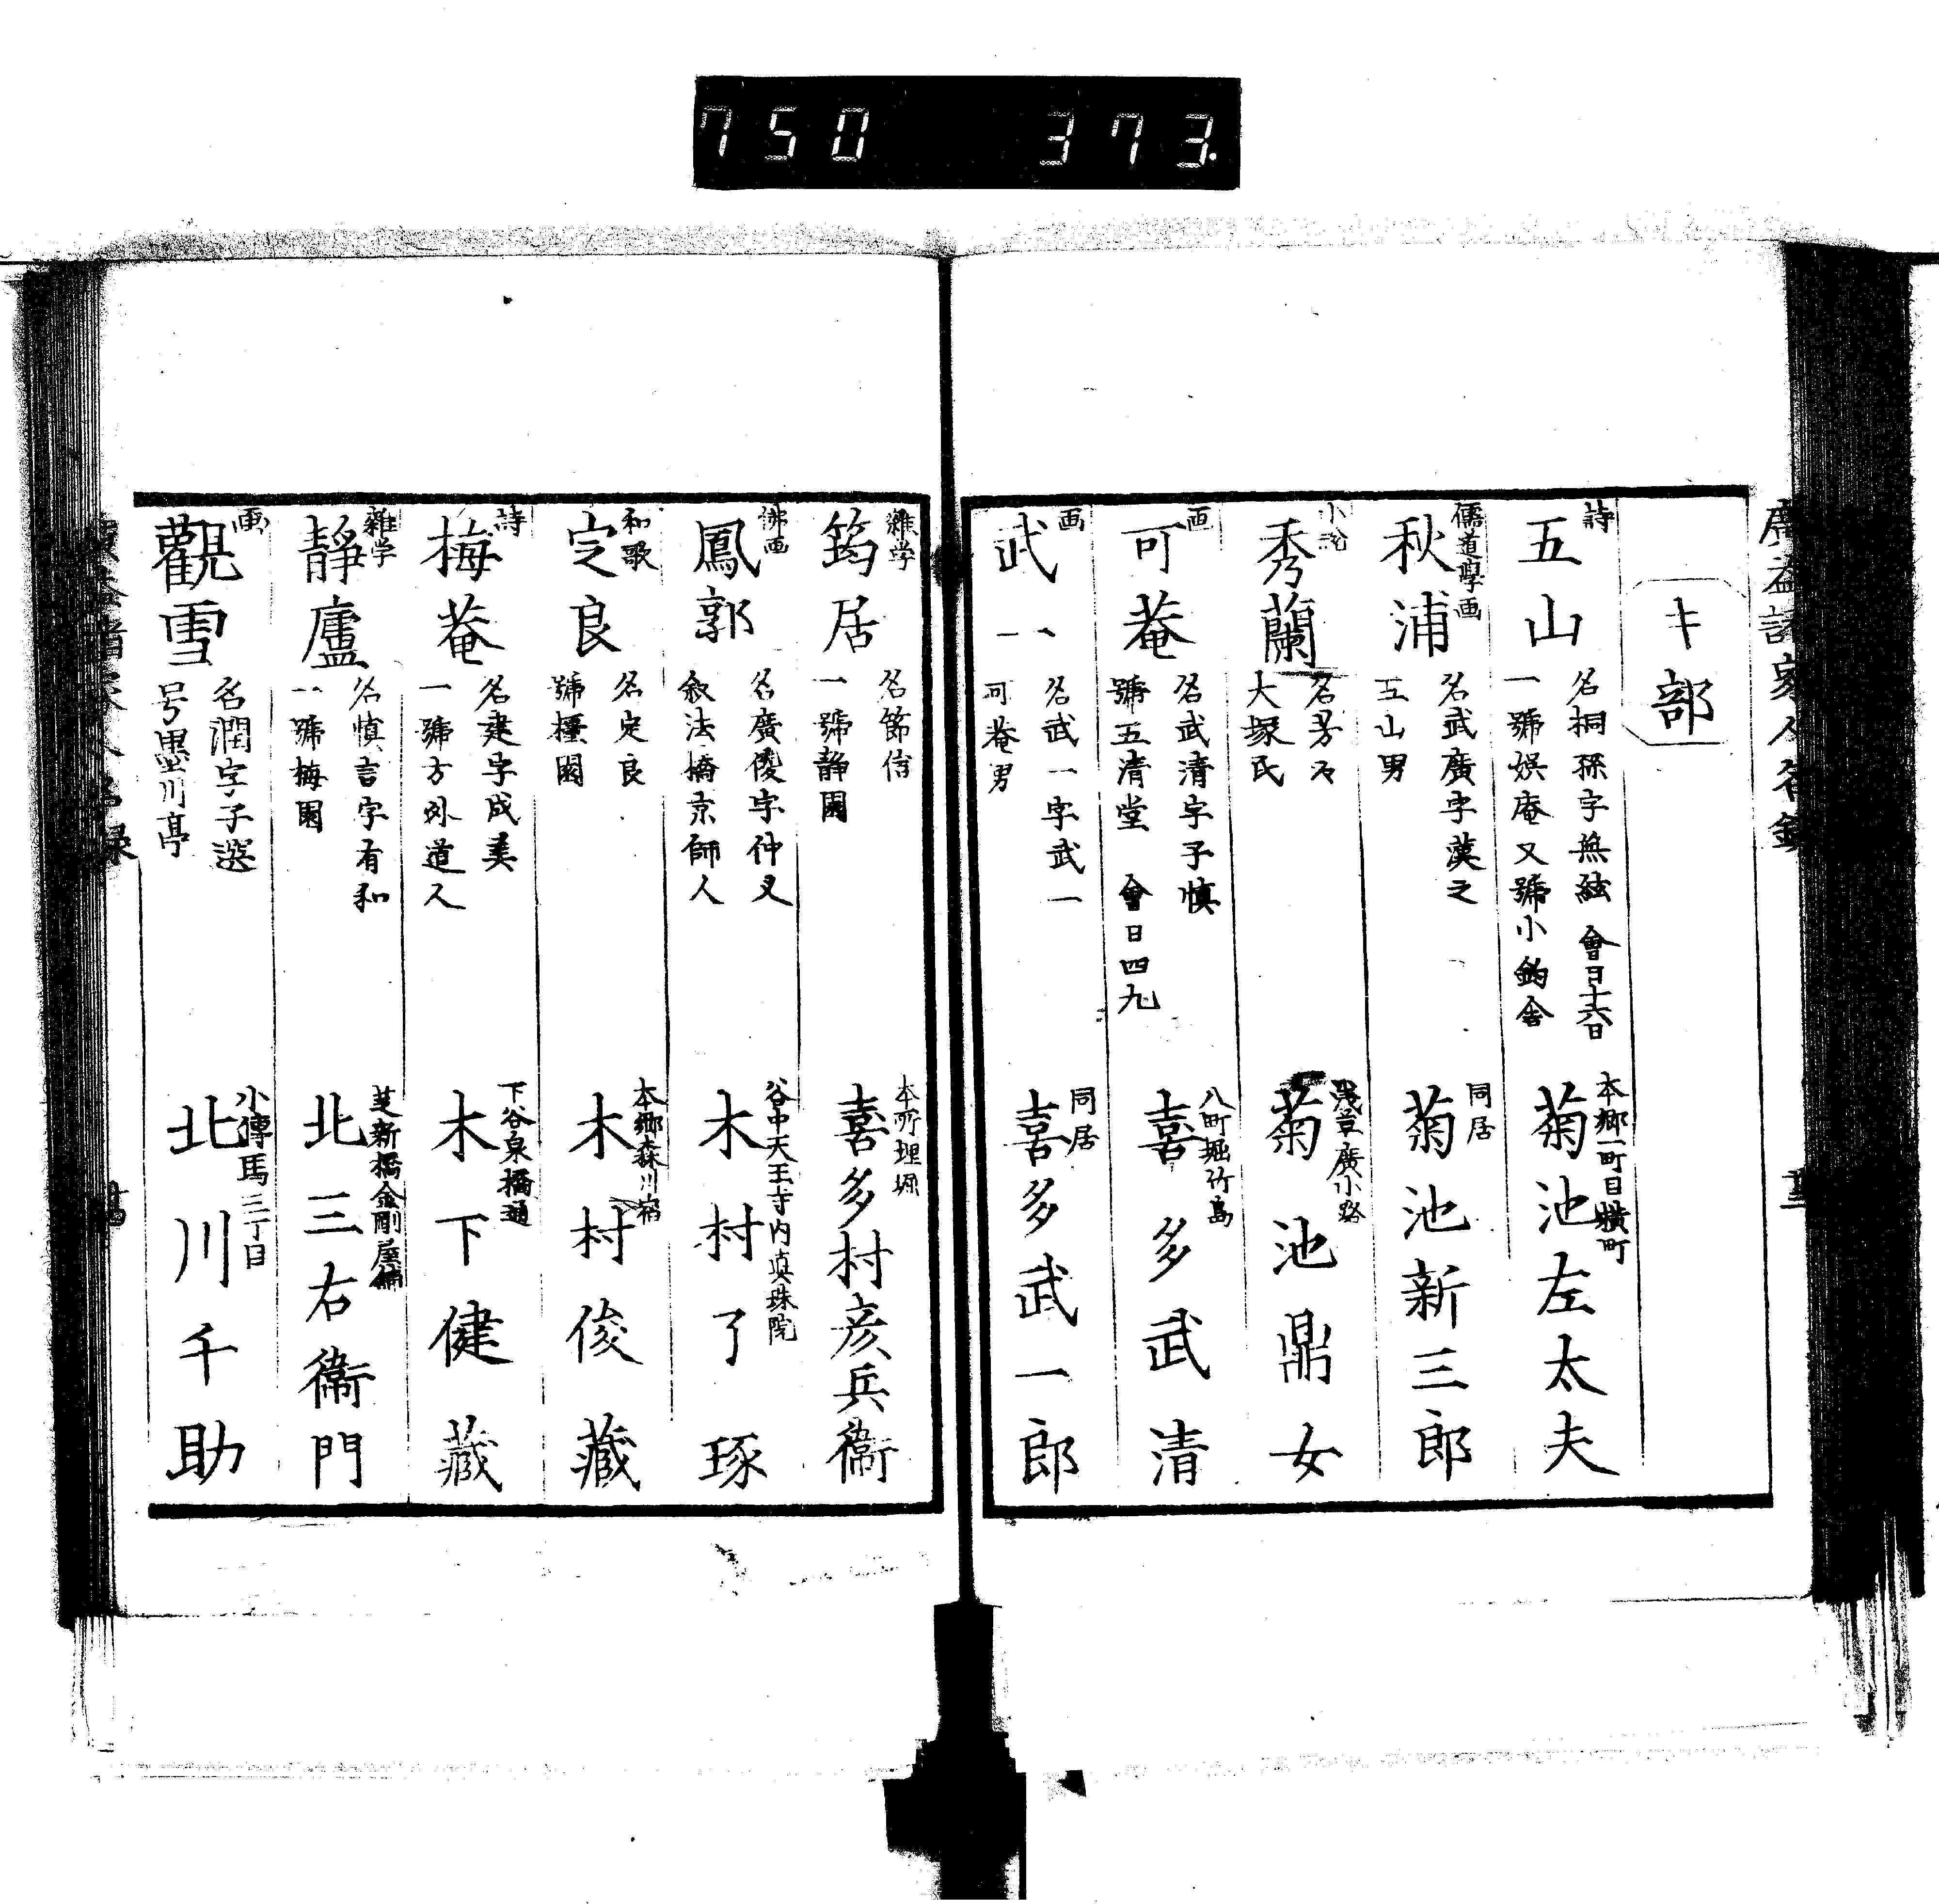 750 373.
廣益諸家人名錄
キ部
詩
五山
名桐孫字無絃 會日十六日
一號娯庵又號小釣舎
本郷一町目横町
菊池左太夫
儒道學画
秋浦
名武廣字漢之
五山男
同居
菊池新三郎
小說
秀蘭
名芳々
大塚氏
浅草廣小路
菊池鼎女
画
可菴
名武清字子慎
號五清堂 會日四九
八町堀竹島
喜多武清
画
武一
名武一字武一
可菴男
同居
喜多武一郎
雜学
筠居
名節信
一號静園
本所埋堀
喜多村彦兵衞
佛画
鳳郭
名廣儔字仲叉
叙法橋京師人
谷中天王寺内真珠院
木村了琢
和歌
定良
名定良
號橿園
本郷森川宿
木村俊藏
詩
梅菴
名建字成美
一號方外道人
下谷泉橋通
木下健藏
雜学
靜廬
名慎言字有和
一號梅園
芝新橋金剛屋鋪
北三右衞門
画
觀雪
名潤字子選
号墨川亭
小傳馬三丁目
北川千助